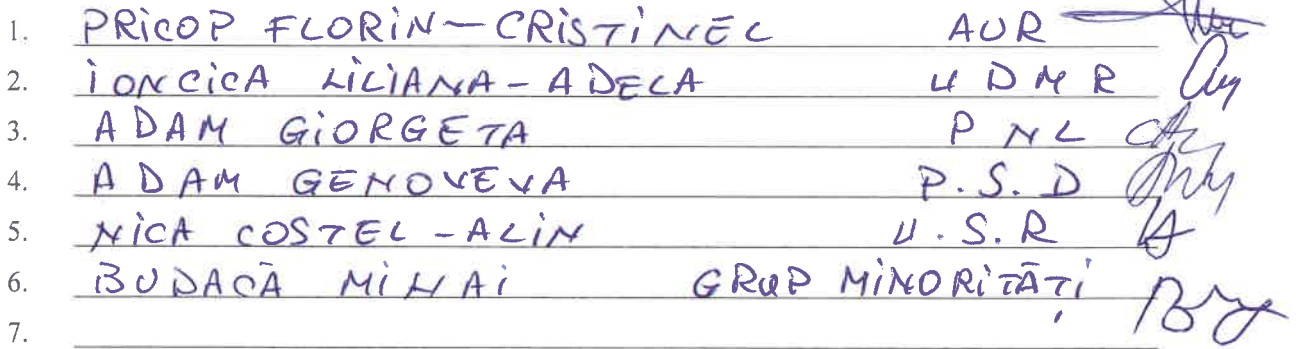 1. PRICOP FLORIN-CRISTINEL AUR
2. IONCICA LILIANA-ADELA UDMR
3. ADAM GIORGETA PNL
4. ADAM GENOVEVA P.S.D
5. NICA COSTEL-ALIN U.S.R
6. BUDACĂ MIHAI GRUP MINORITĂȚI
7.